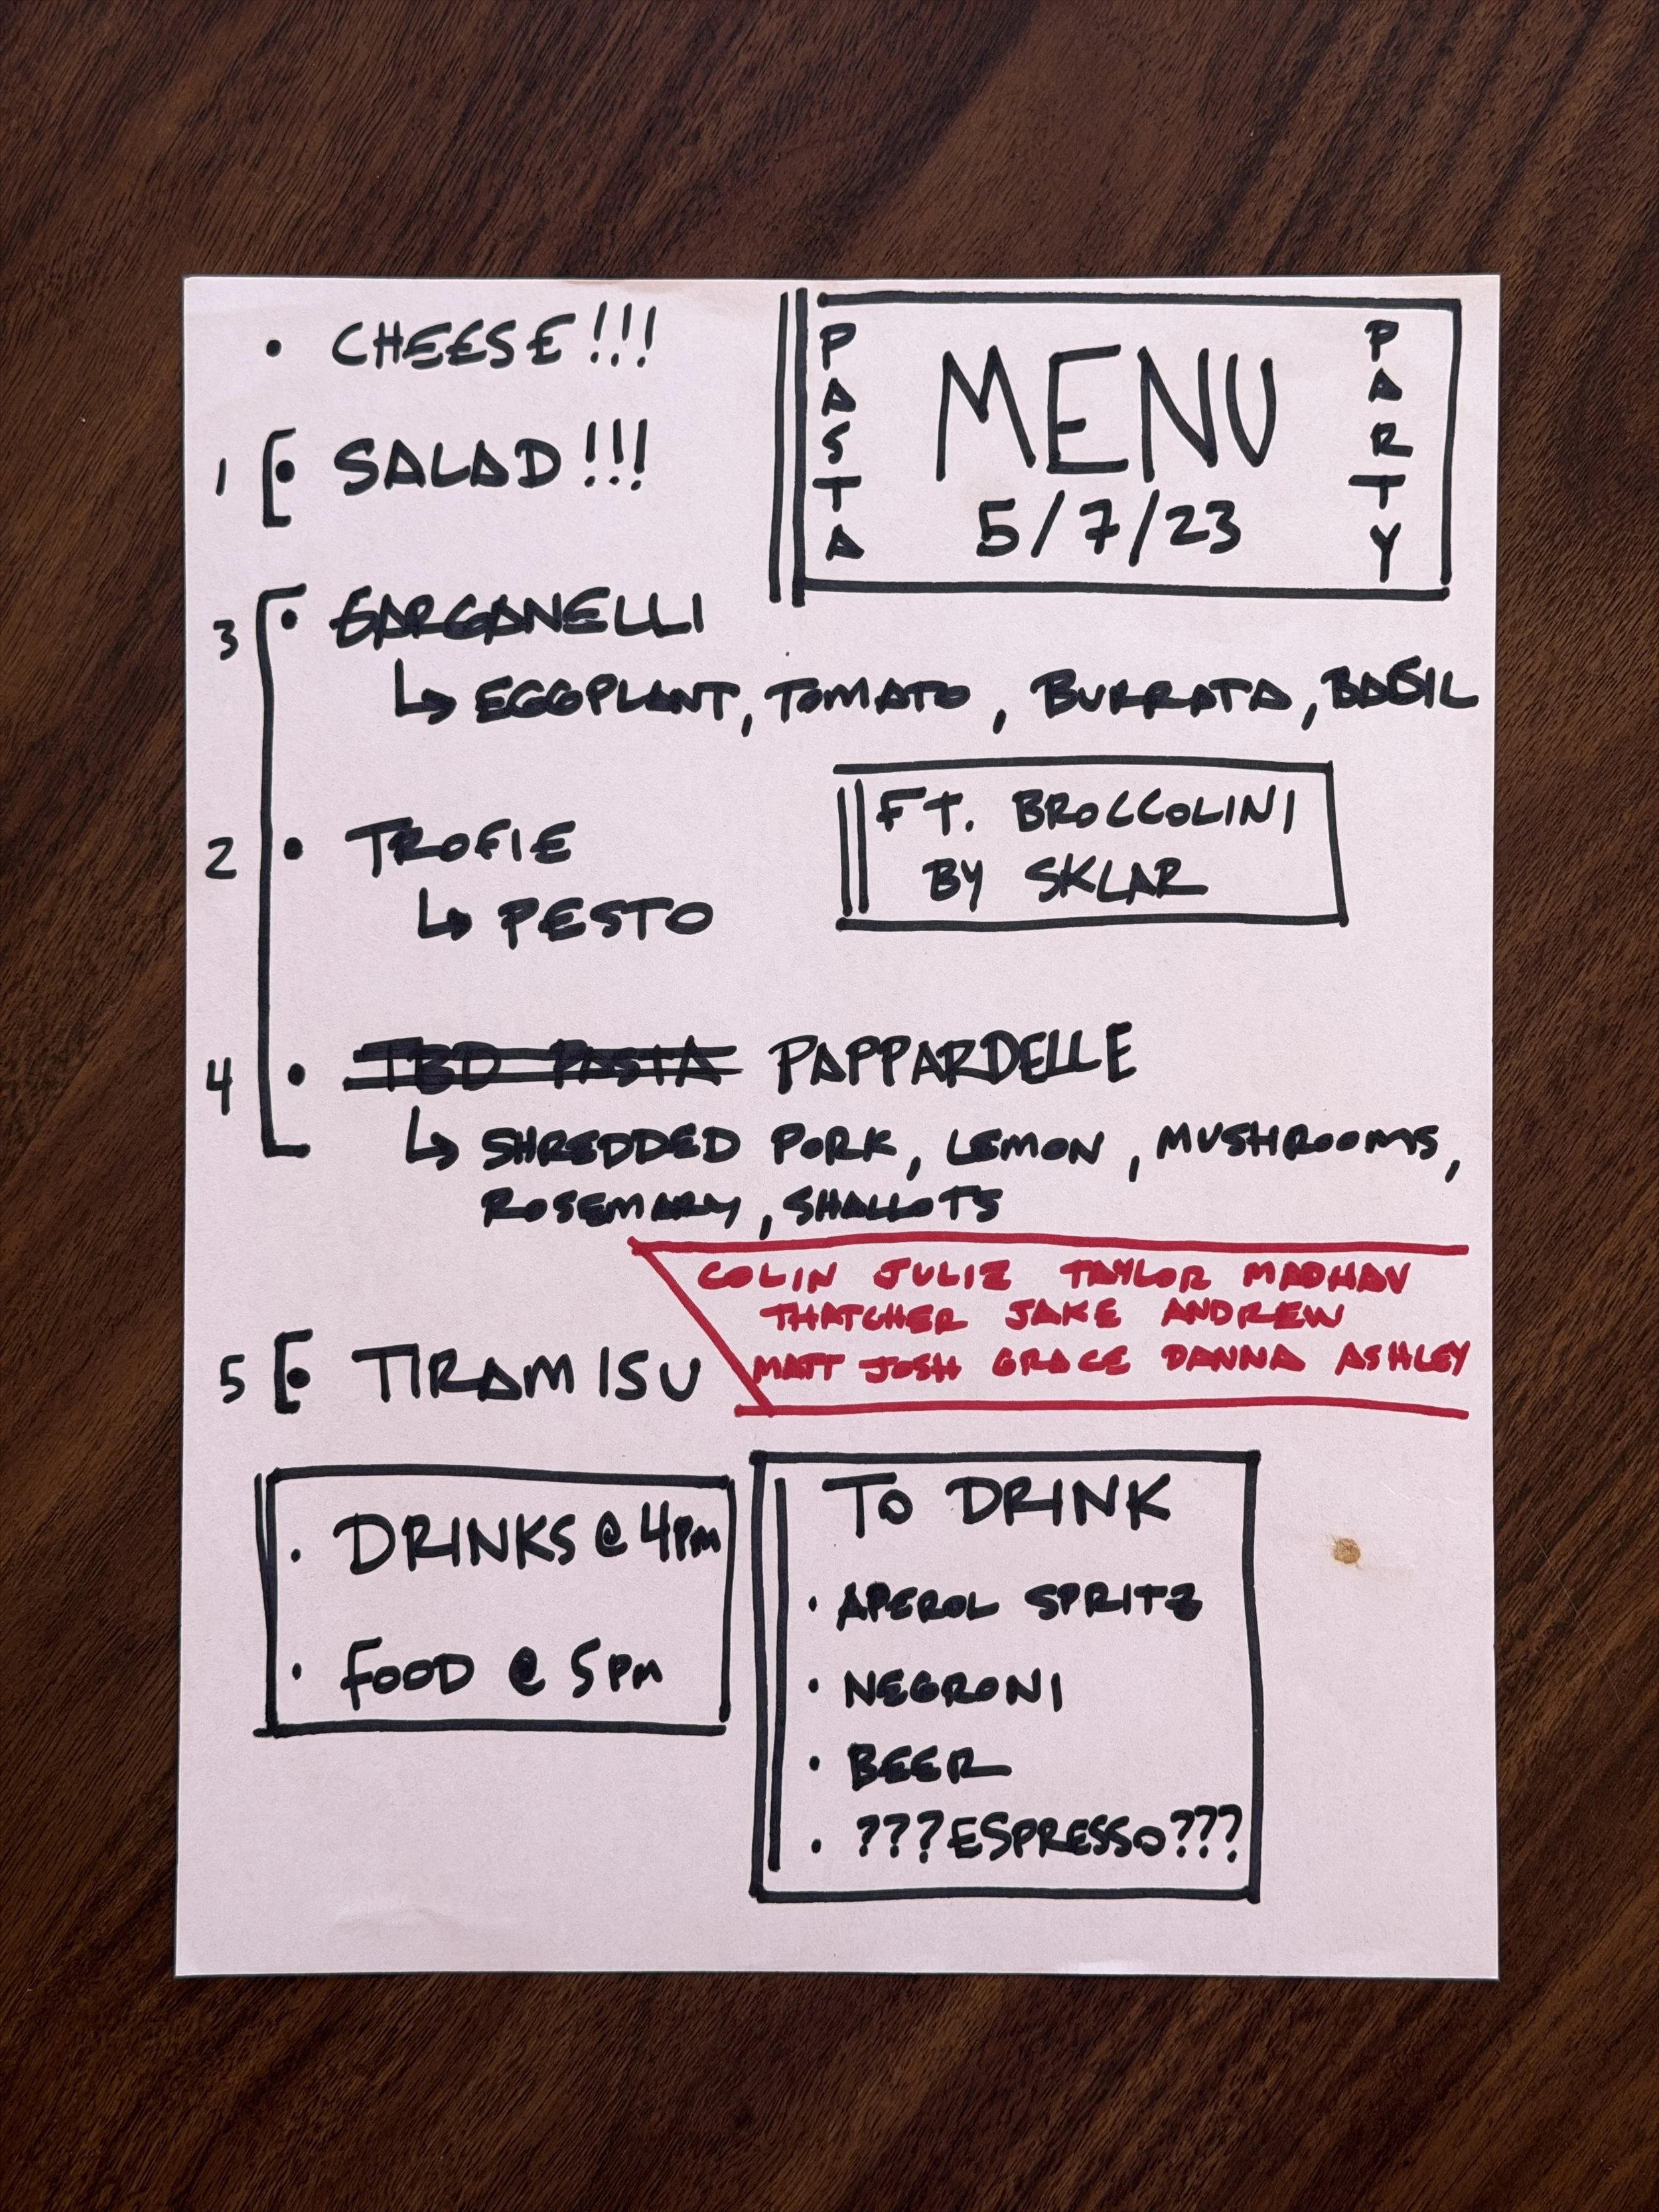 • CHEESE!!!
1 [• SALAD!!!
PASTA
MENU
5/7/23
PARTY
3 • GARGANELLI
↳ EGGPLANT, TOMATO, BURRATA, BASIL
2 • TROFIE
↳ PESTO
FT. BROCCOLINI
BY SKLAR
4 • TBD PASTA PAPPARDELLE
↳ SHREDDED PORK, LEMON, MUSHROOMS,
ROSEMARY, SHALLOTS
COLIN JULIE TAYLOR MADHAV
THATCHER JAKE ANDREW
MATT JOSH GRACE DANNA ASHLEY
5 [• TIRAMISU
• DRINKS @ 4PM
• FOOD @ 5PM
TO DRINK
• APEROL SPRITZ
• NEGRONI
• BEER
• ???ESPRESSO???